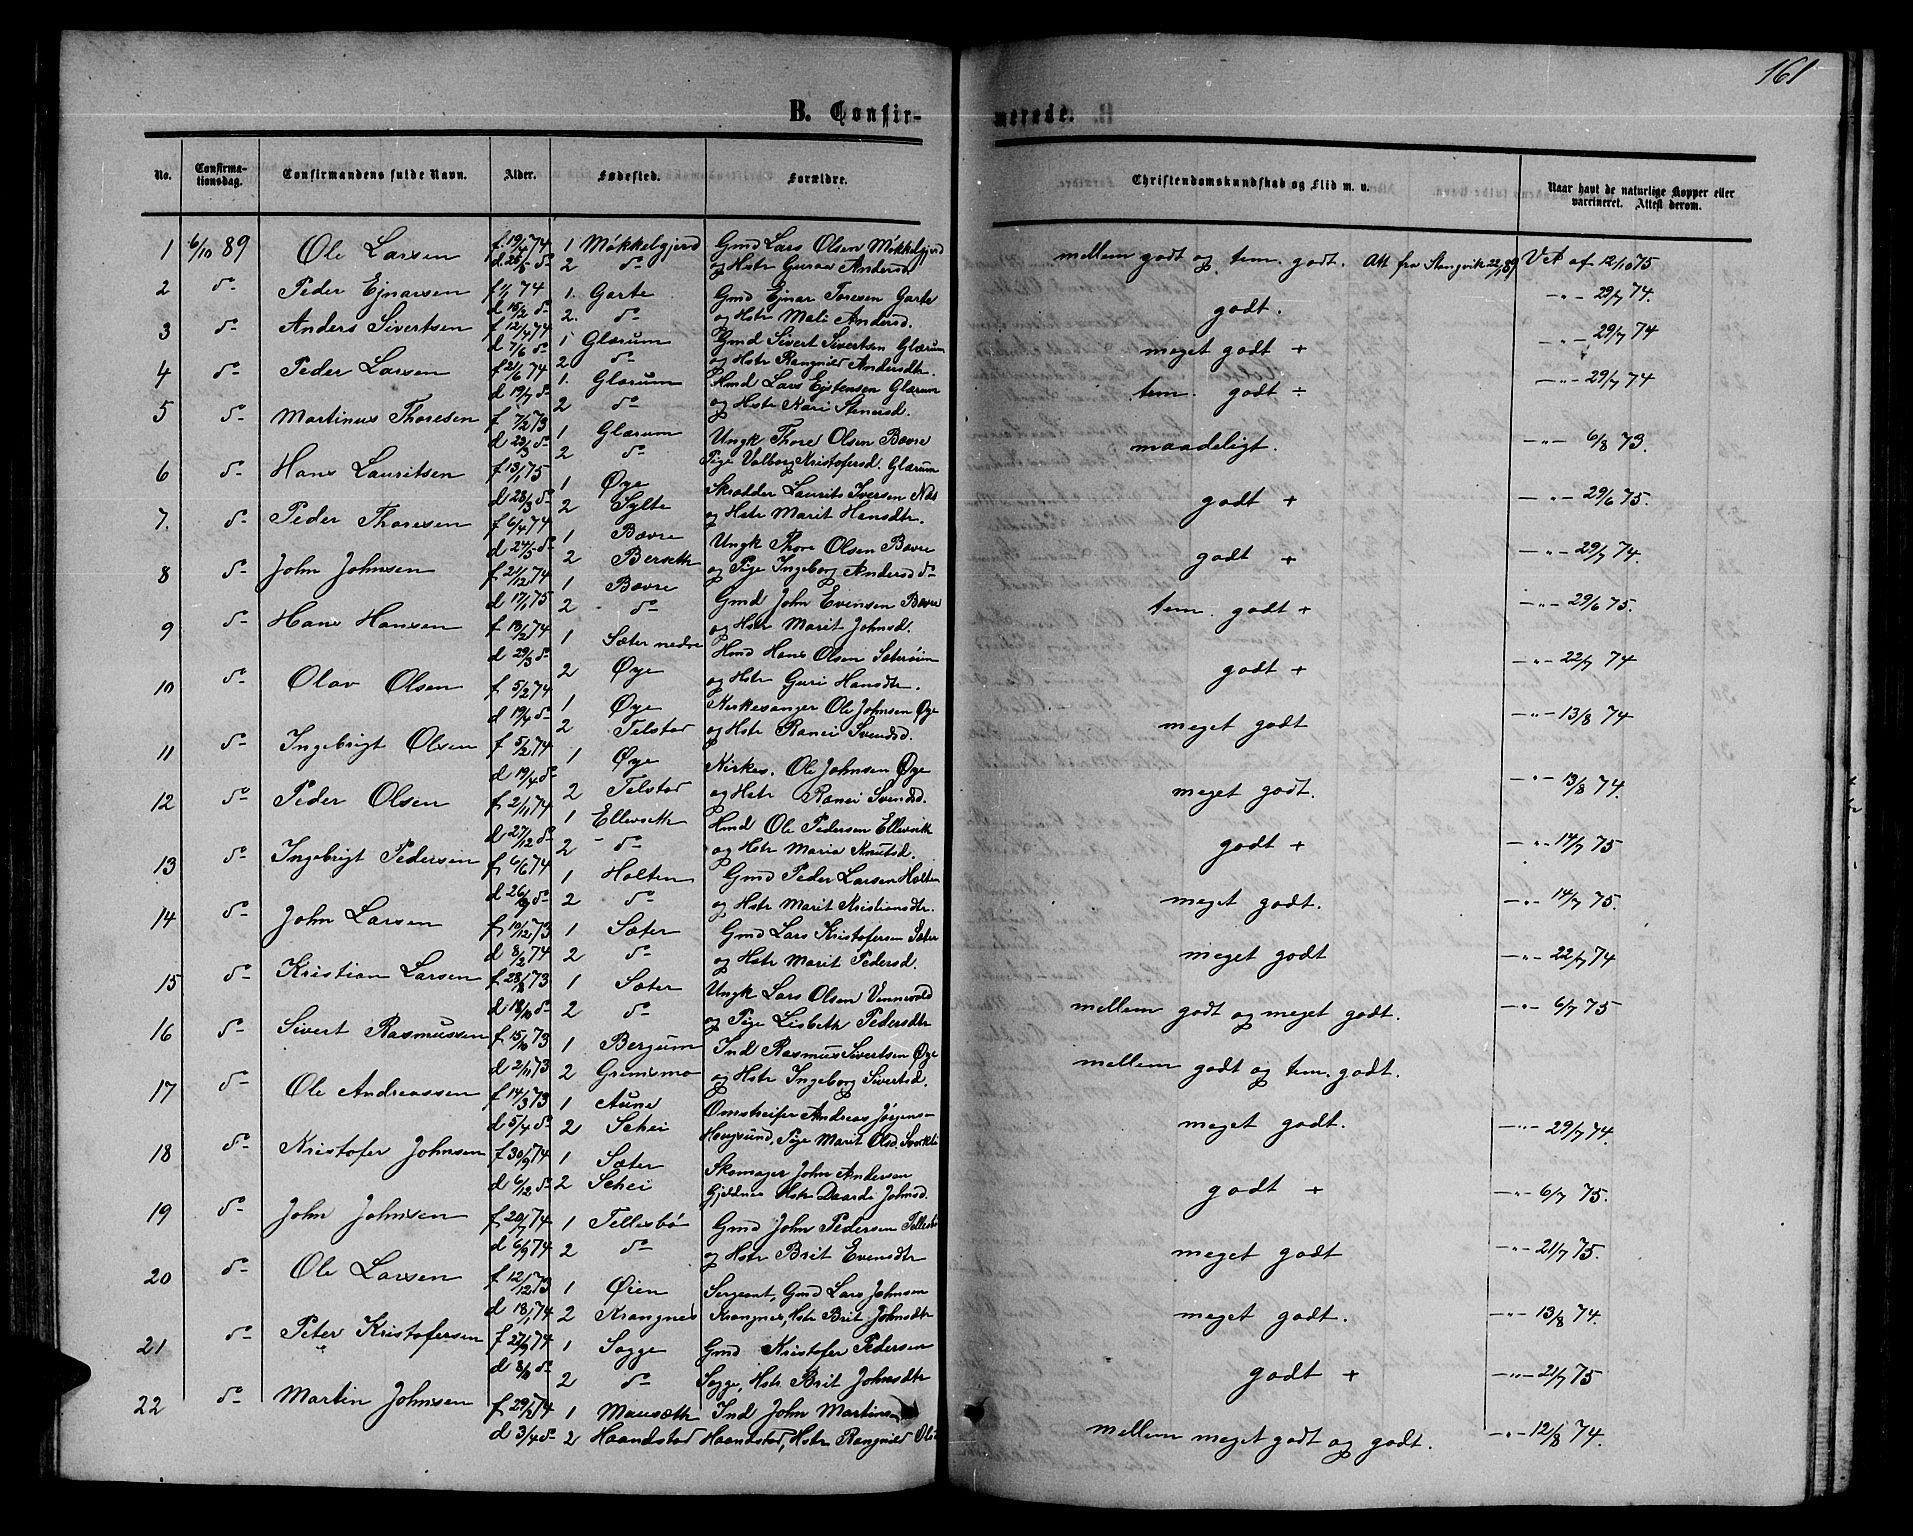 161
B. Confirmerede.
No. Confirmationsdag. Confirmandens fulde Navn. Alder. Fødested. Forældre. Christendomskundskab og Flid m. v. Naar havt de naturlige Kopper eller vaccineret. Attest derom.
1 6/10 89 Ole Larsen f. 19/4 74 1 Møkkelgjerd Gmd Lars Olsen Møkkelgjerd mellem godt og tem. godt. Att fra Stangvik 22/1 89 V.A. af 12/10 75
d. 25/5 do 2 do og Hstr Guroe Andersd
2 do Peder Ejnarsen f 1/1 74 1. Garte Gmd Ejnar Toresen Garte godt. -"- 29/7 74.
d 15/2 do 2. do og Hstr Mali Andersd.
3 do Anders Sivertsen f 12/4 74 1 Glærum Gmd Sivert Sivertsen Glærum meget godt + -"- 29/7 74
d 7/6 do 2 do og Hstr Rangnild Andersdtr.
4 do Peder Larsen f 21/6 74 1. Glærum Hmd Lars Ejstensen Glærum tem. godt ÷ -"- 29/7 74
d 19/7 do 2 do og Hstr Kari Stenersd.
5 do Martinus Thoresen f 7/2 73 1 Glærum Ungk Thore Olsen Bævre maadeligt. -"- 6/8 73.
d 23/3 do 2 do Pige Valborg Kristofersd. Glærum
6 do Hans Lauritsen f 13/1 75 1 Øye Skrædder Laurits Iversen Næs godt + -"- 29/6 75.
d 28/3 do 2 Sylte og Hstr Marit Hansdtr.
7. do Peder Thoresen f 6/4 74 1 Bævre Ungk Thore Olsen Bævre godt + -"- 29/7 74.
d 24/5 do 2 Berseth og Pige Ingeborg Andersd do
8 do John Johnsen f 21/12 74 1 Bævre Gmd John Evensen Bævre tem. godt + -"- 29/6 75.
d 17/1 75 2 do og Hstr Marit Johnsd.
9 do Hans Hansen f 13/2 74 1 Sæter nedre Hmd Hans Olsen Sæterøien godt + -"- 22/7 74
d 29/3 do 2 Øye og Hstr Guri Hansdtr.
10 do Olav Olsen f 5/2 74 1 Øye Kirkesanger Ole Johnsen Øye meget godt -"- 13/8 74
d 19/4 do 2 Telstad og Hstr Ranei Svendsd.
11 do Ingebrigt Olsen f 5/2 74 1 Øye Kirkes. Ole Johnsen Øye meget godt. -"- 13/8 74.
d 19/4 do 2 Telstad og Hstr Ranei Svendsd.
12 do Peder Olsen f 2/11 74 1 Ellevseth Hmd Ole Pedersen Ellevsik godt + -"- 14/7 75
d 27/12 do 2 do og Hstr Maria Knutsd.
13 do Ingebrigt Pedersen f 6/6 74 1 Holten Gmd Peder Larsen Holten meget godt. -"- 14/7 75.
d 26/9 do 2 do og Hstr Marit Kristiansdtr.
14 do John Larsen f 10/12 73 1 Sæter Gmd Lars Kristofersen Sæter meget godt -"- 22/7 74
d 8/2 74 2 do og Hstr Marit Pedersd.
15 do Kristian Larsen f 28/8 73 1 Sæter Ungk Lars Olsen Vennevold mellem godt og meget godt. -"- 6/7 75
d 18/10 do 2 do og Pige Lisbeth Pedersdtr
16 do Sivert Rasmussen f 15/10 73 1 Bergum Ind Rasmus Sivertsen Øye mellem godt og tem. godt.
d 2/11 73 2 Grenismo og Hstr Ingeborg Sivertsd.
17 do Ole Andreassen f 14/3 73 1 Aune Omstreifer Andreas Jørgens- meget godt. -"- 29/7 74.
d 5/4 do 2 Schei Haugsund, Pige Marit Olsd.
18 do Kristofer Johnsen f 30/9 74 1 Sæter Skomager John Andersen godt + -"- 6/7 75.
d 6/12 do 2 Schei Gjeldnes Hstr Daarde Johnsd.
19 do John Johnsen f 20/7 74 1 Tellesbø Gmd John Pedersen Tellesbø meget godt -"- 21/7 75.
d 6/9 74 2 do og Hstr Brit Evensdtr
20 do Ole Larsen f 12/12 73 1 Øien Sergeant, Gmd Lars Johnsen meget godt. -"- 13/8 74.
d 18/1 74 2 Krangnes Krangnes, Hstr Brit Johnsdtr
21 do Peter Kristofersen f 27/9 74 1 Sogge Gmd Kristofer Pedersen godt + -"- 21/7 75
d 8/11 do 2 do Sogge, Hstr Brit Johnsdtr
22 do Martin Johnsen f 29/1 74 1 Mausæth Ind John Martinsen mellem meget godt og godt. -"- 12/8 74.
d 3/4 do 2 Haandstad Haandstad, Hstr Rangnild